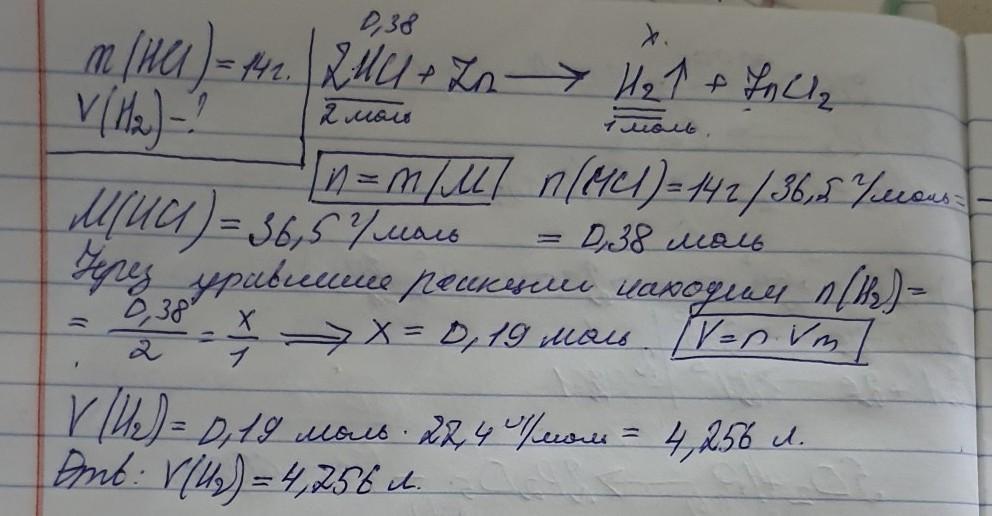 m(HCl) = 14г.
V(H₂) - ?
0,38 x.
2HCl + Zn ⟶ H₂↑ + ZnCl₂
2 моль 1 моль.
n = m/M n(HCl) = 14г/36,5 г/моль =
M(HCl) = 36,5 г/моль = 0,38 моль
Через уравнение реакции находим n(H₂) =
= 0,38/2 = x/1 ⟹ x = 0,19 моль. V = n · Vm
V(H₂) = 0,19 моль · 22,4 л/моль = 4,256 л.
Отв: V(H₂) = 4,256 л.